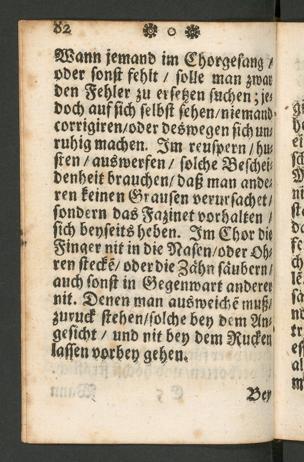 82
Wann jemand im Chorgesang /
oder sonst fehlt / solle man zwar
den Fehler zu ersetzen suchen; je-
doch auf sich selbst sehen/niemand
corrigiren/oder deswegen sich un-
ruhig machen. Im reuspern / hu-
sten / auswerfen / solche Beschei-
denheit brauchen/ daß man ande-
ren keinen Grausen verursachet/
sondern das Fazinet vorhalten /
sich beyseits heben. Im Chor die
Finger nit in die Nasen/oder Oh-
ren steckē/ oder die Zähn säubern/
auch sonst in Gegenwart anderer
nit. Denen man ausweichē muß/
zuruck stehen/solche bey dem An-
gesicht / und nit bey dem Rucken
lassen vorbey gehen.
Bey